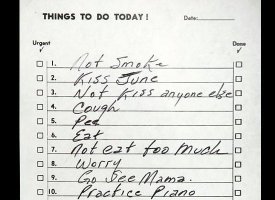 THINGS TO DO TODAY! Date:
Urgent Done
1. Not Smoke
2. Kiss June
3. Not Kiss anyone else
4. Cough
5. Pee
6. Eat
7. Not eat too much
8. Worry
9. Go See Mama.
10. Practice Piano